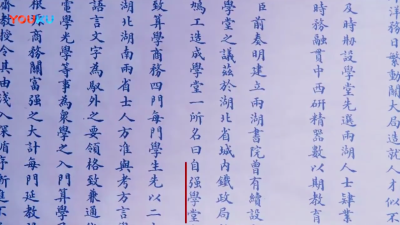 YOUKU
洋務日繁動關大局造就人才似不
及時勘設學堂先選兩湖人士肄業
時務融貫中西研精器數以期教育
臣前奏明建立兩湖書院曾有續設
學堂之議茲於湖北省城內鐵政局
鳩工造成學堂一所名曰自强學堂
致算學商務四門每門學生先以二
湖北湖南兩省士人方准與考方言
語言文字為馭外之要領格致兼通
電學光學等事為衆學之入門算學乃
根本商務關富强之大計每門延教
齋教授令其由淺入深循序漸進不